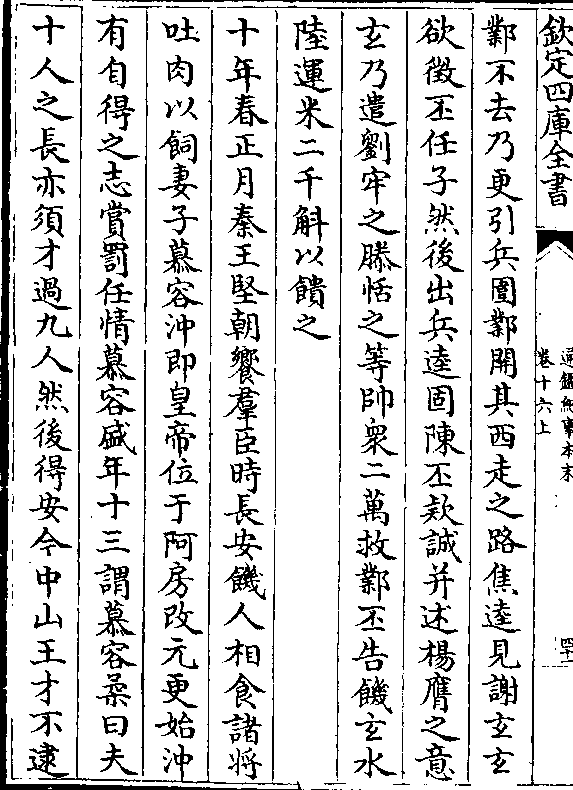 欽定四庫全書
通鑑紀事本末
卷十六上
四十一
鄴不去乃更引兵圍鄴開其西走之路焦逵見謝玄玄
欲徵丕任子然後出兵逵固陳丕欵誠并述楊膺之意
玄乃遣劉牢之滕恬之等帥衆二萬救鄴丕告饑玄水
陸運米二千斛以饋之
十年春正月秦王堅朝饗羣臣時長安饑人相食諸將
吐肉以飼妻子慕容沖即皇帝位于阿房改元更始沖
有自得之志賞罰任情慕容盛年十三謂慕容柔曰夫
十人之長亦須才過九人然後得安今中山王才不逮